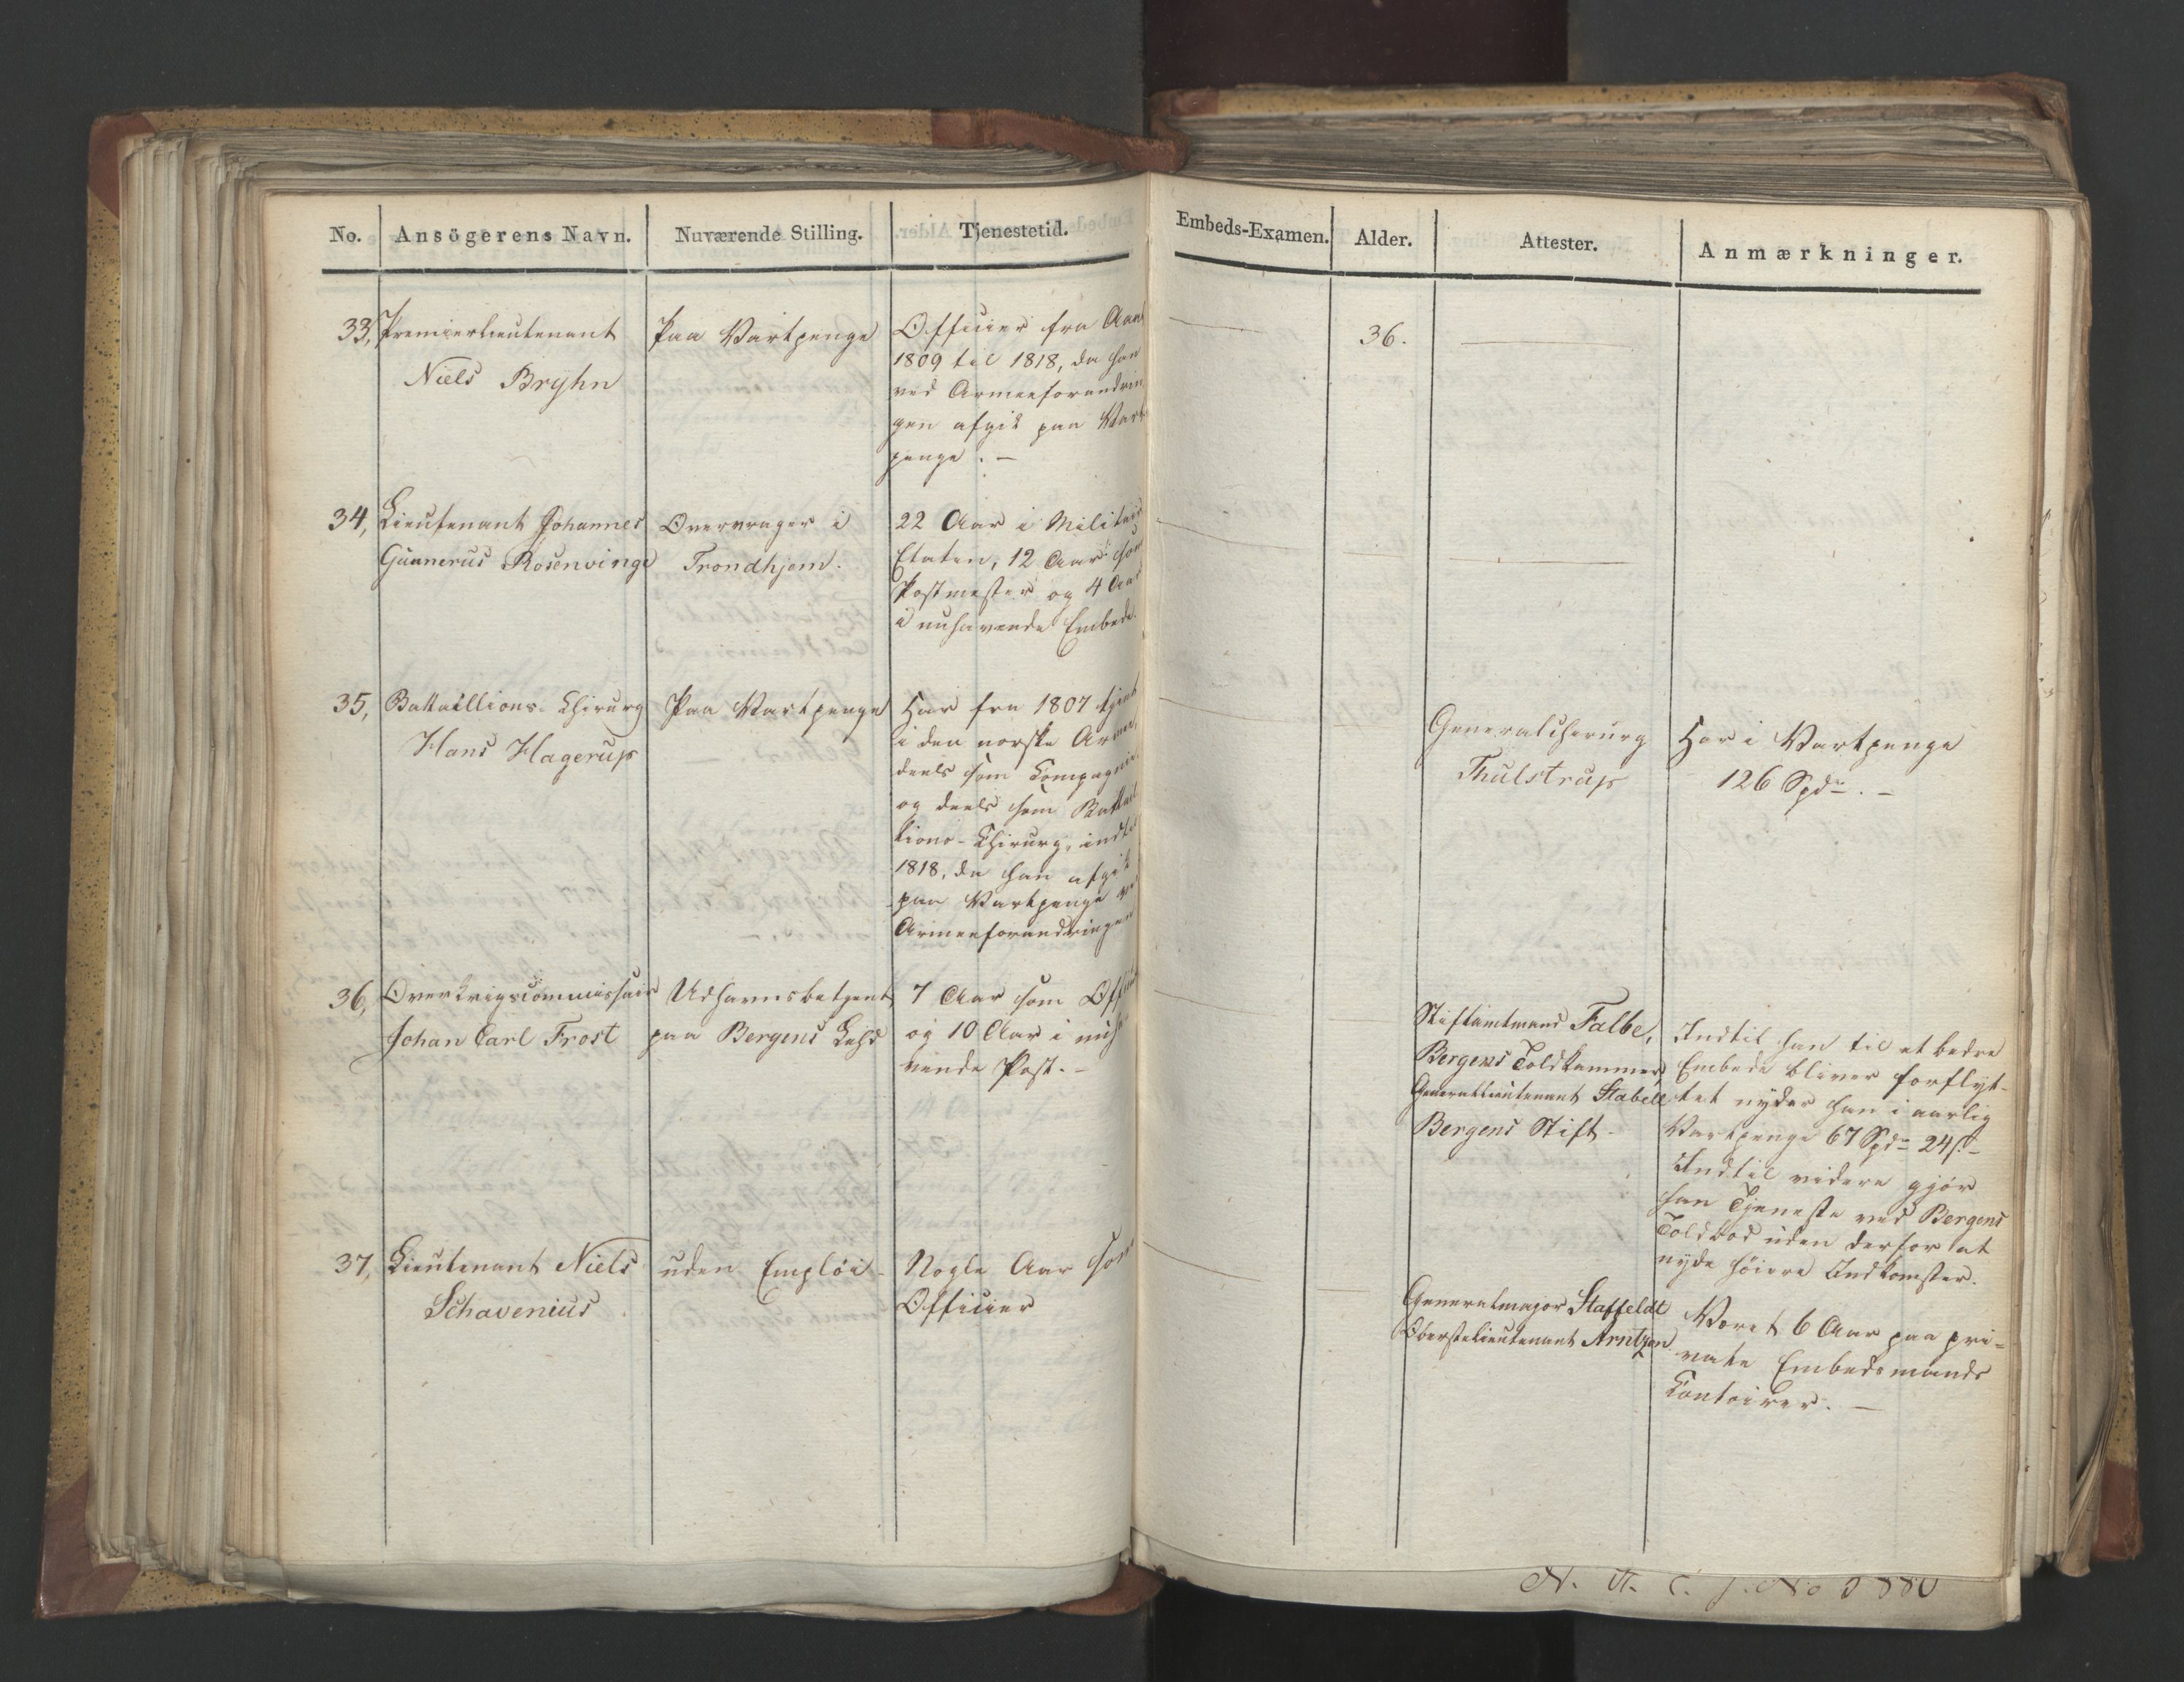 No. Ansögerens Navn. Nuværende Stilling. Tjenestetid.
33, Premierlieutenant
Niels Bryhn
Paa Vartpenge
Officier fra Aaret
1809 til 1818, da han
ved Armeeforandrin
gen afgik paa Vart
penge. –
34, Lieutenant Johannes
Gunnerus Rosenvinge
Overvrager i
Trondhjem.
22 Aar i Militair
Etaten, 12 Aar som
Postmester og 4 Aar
i nuhavende Embede.
35, Battaillions-Chirurg
Hans Hagerup
Paa Vartpenge
Har fra 1807 tjent
i den norske Armee,
deels som Compagnie-
og deels som Battail
lions-Chirurg, indtil
1818, da han afgik
paa Vartpenge ved
Armeeforandringen
36, Overkrigscommissair
Johan Carl Frost
Udhavnsbetjent
paa Bergens Lehd
7 Aar som Officier
og 10 Aar i nuha
vende Post. –
37, Lieutenant Niels
Schavenius
uden Emploi –
Nogle Aar som
Officier
Embeds-Examen. Alder. Attester. Anmærkninger.
36.
Generalchirurg
Thulstrup
Har i Vartpenge
126 Spdr. –
Stiftamtmand Falbe,
Bergens Toldkammer,
Generallieutenant Stabell
Bergens Stift –
Indtil han til et bedre
Embede bliver forflyt-
tet nyder han i aarlig
Vartpenge 67 Spdr 24 ß –
Indtil videre gjør
han Tjeneste ved Bergens
Toldbod uden derfor at
nyde høiere Indkomster.
Generalmajor Staffeldt
Oberstelieutenant Arntzen
Været 6 Aar paa pri-
vate Embedsmænds
Contoirer. –